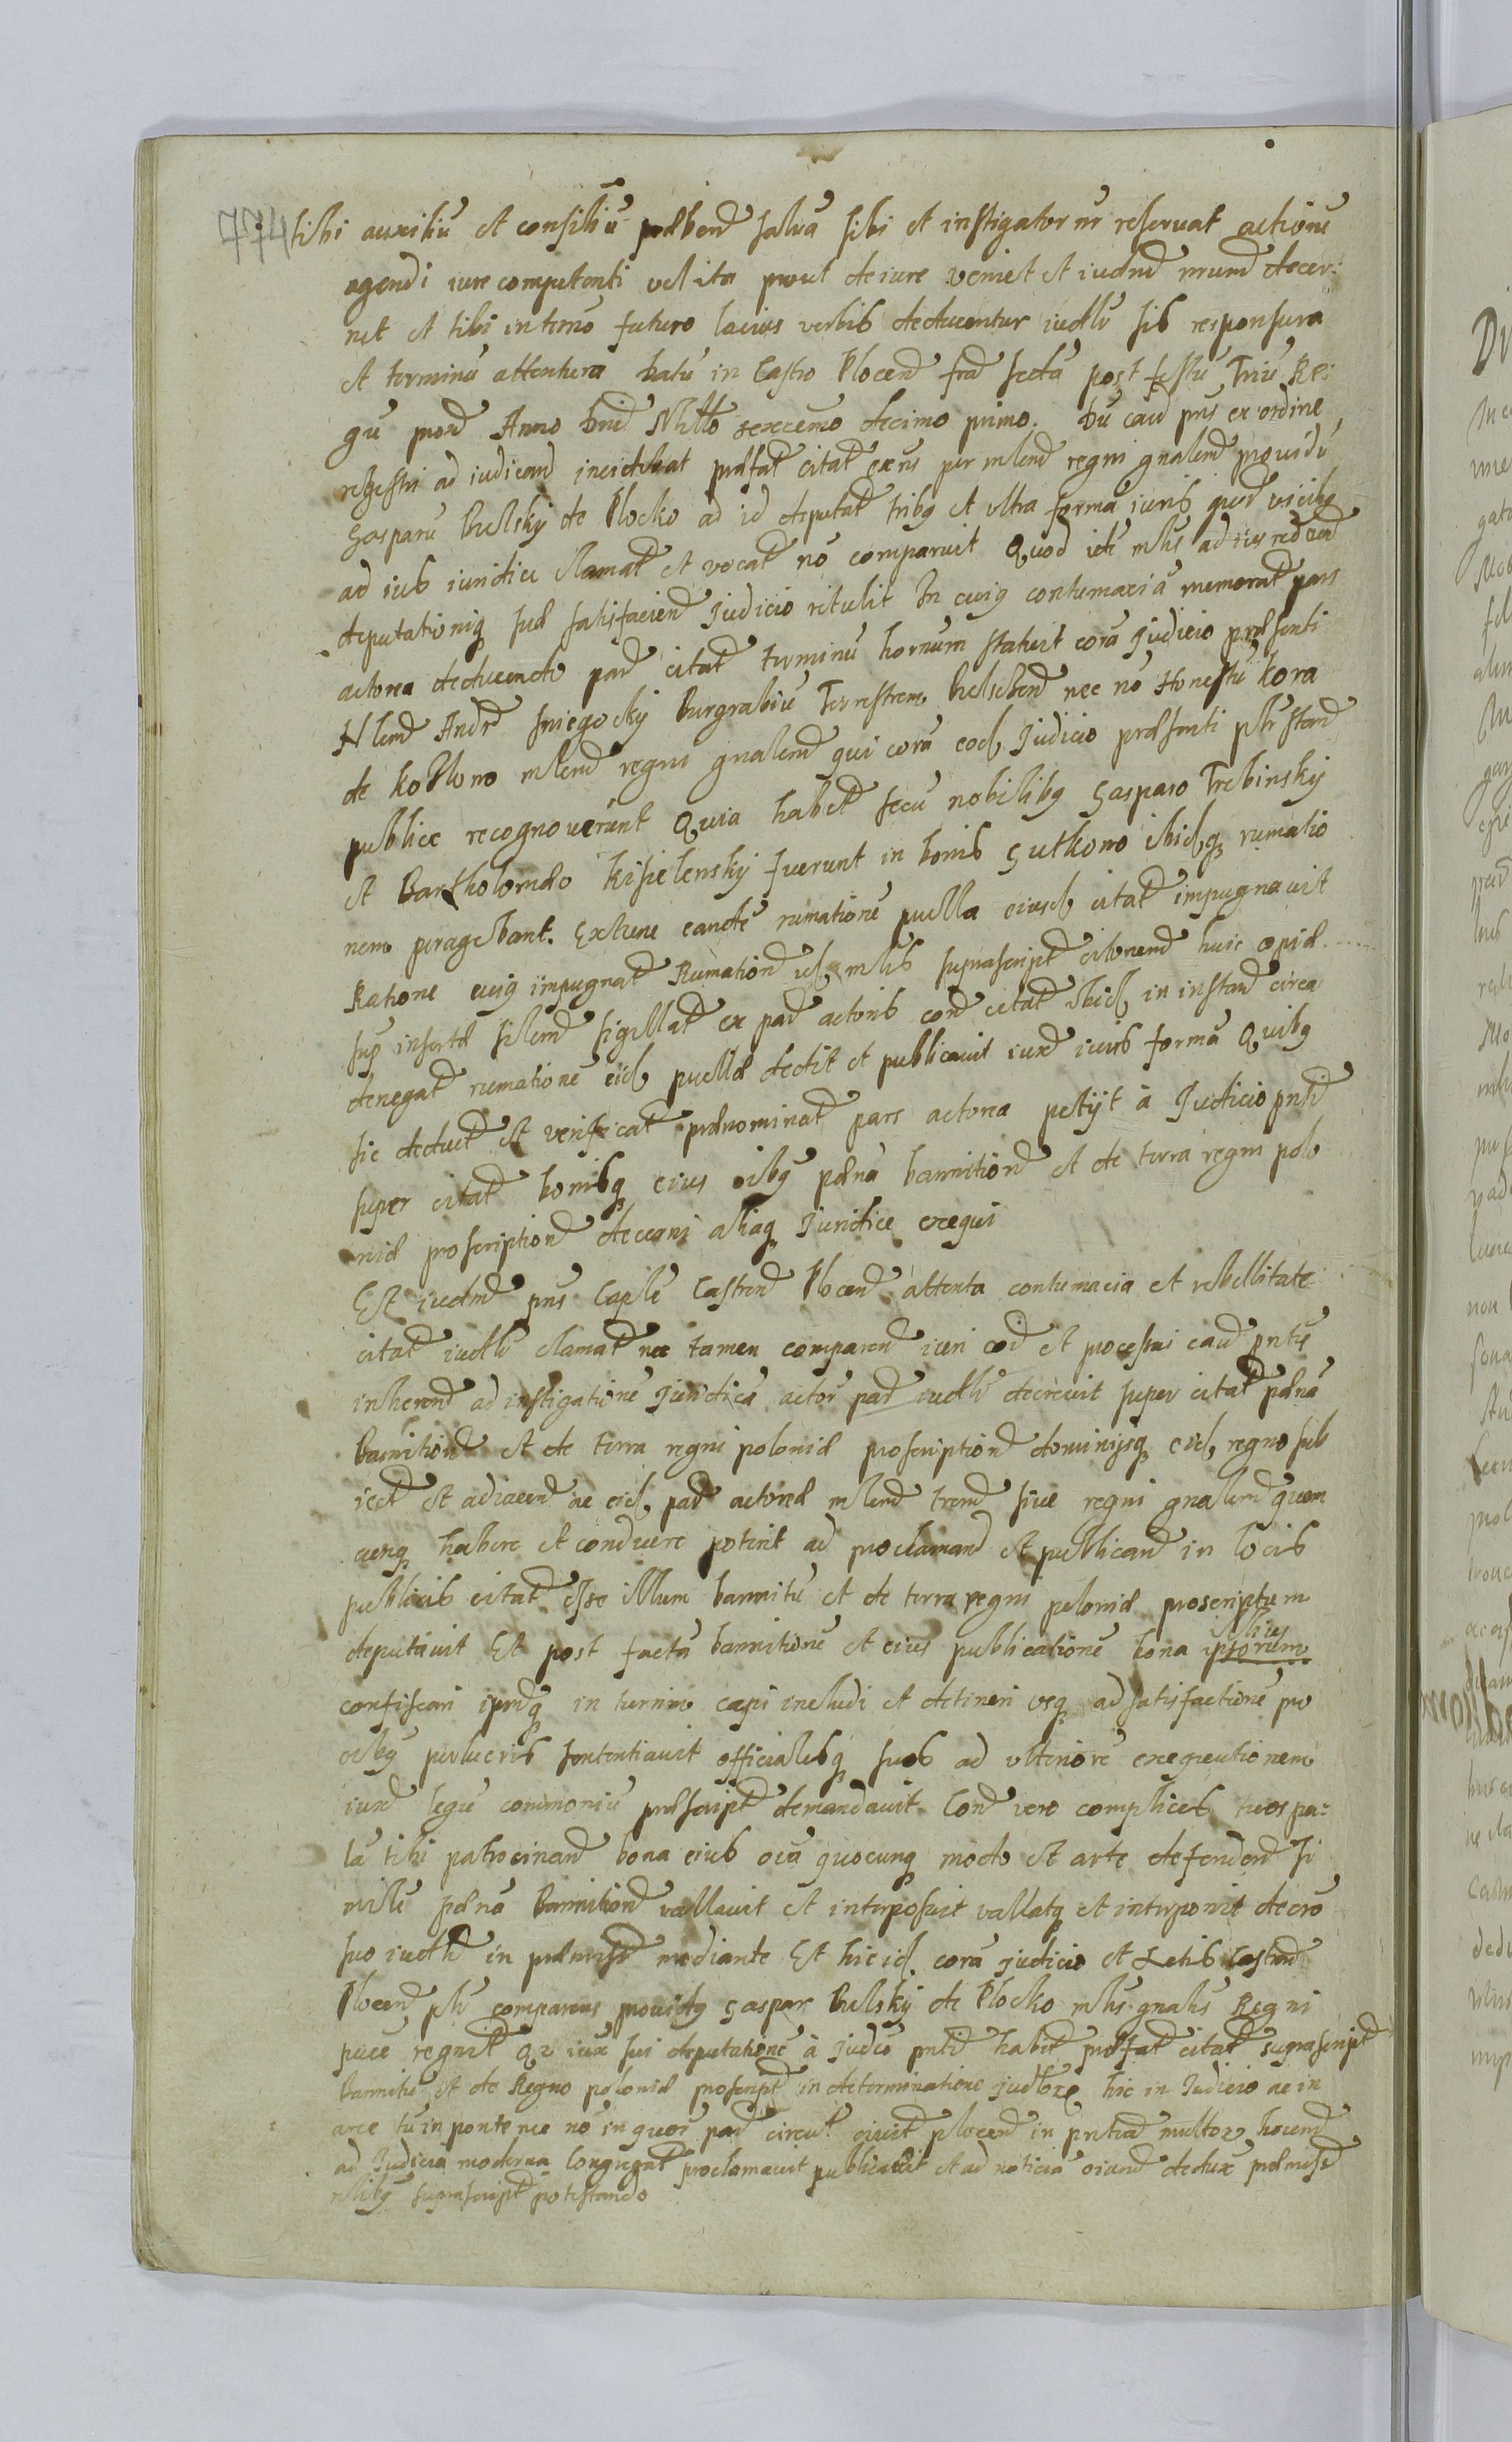 774
tibi auxiliũ et consiliũ prębend saluã sibi et instigator nr reseruat actionẽ
agendi iure competenti vel ita prout de iure veniet et iudnd mrum decer:
net et tibi in termo futuro lacius verbis deducentur iudłr sis responsura
et terminũ attentura Datũ in Castro Plocen frą secũ post festũ Triũ Re:
gũ prox Anno Dni Millo sexcemo decimo primo. Dũ caũ pns ex ordine
regestri ad iudicand incidebat prefat citat ex ns per mlem regni gnalem prouidũ
Gasparũ Bielsky de Plocko ad id deputat tribg et vltra formã iuris quor vicibg
ad ius iuridice clamat et vocat nõ comparuit Quod idẽ mlis ad ius reddend
deputationig suę satisfaciend Judicio retulit In cuig contumaciã memorat pars
actorea deducendo pãr citat terminũ hornum statuit corã Judicio pręsenti
Nlem Andr Sniegocky Burgrabiũ Terrestrem Bielscens nec nõ Honestũ kora
de koßlowo mlem regni gnalem qui corã eod Judicio pręsenti plr stand
publice recognouerunt Quia habet secũ nobilibg Gasparo Trebinsky
et Bartholomęo Kisielensky fuerunt in bonis Gutkowo ibidq rumatio
nem peragebant. Extunc eandẽ rumationẽ puella eiusd citat impugnauit
Ratione cuig impugnat Rumation id mlis suprascript citonem huic copię
sup insertę silem sigillat ex pãr actoris con citat ibid in instan circa
denegat rumationẽ eid puellę dedit et publicauit iuxt iuris formã Quibg
sic deduct et verificat prenominat pars actorea petijt à Judicio pnti
super citat bonisq eius oibg pęnã bannition et de terra regni polo
nię proscription decerni aliaq Juridice exequi
Et iudm pns Caple Castren Plocen attenta contumacia et rebellitate
citat iudłr clamat nec tamen comparen iuri coi et processui caũ pntis
inheren ad instigationẽ Juridicã actor pãr iudłr decreuit super citat pęnã
bannition et de terra regni polonię proscription dominijsq eid regno sub
iect et adiacen ac eid pãr actoreę mlem trem siue regni gnalem quem
cunq habere et conducere poterit ad proclamand et publicand in locis
publicis citat esse illum bannitũ et de terra regni polonię proscriptum
deputauit Et post factã bannitionẽ et eius publicationẽ bona ipsorum illius
confiscari ipmq in turrim capi includi et detineri vsq ad satisfactionẽ pro
oibg perlucris sententiauit officialesq suos ad vlteriorẽ exequutionem
iuxt legũ communiũ prescript demandauit Con vero complices tuos pa:
lã tibi patrocinand bona eius oia quocunq modo et arte defendend si
milẽ pęnã Bannition vallauit et interposuit vallatq et interponit decro
suo iudłi in premiss mediante Et hic id corã Judicio et actis Castren
Plocen plr comparens prouidg Gaspar Bielsky de Plocko mlis gnalis Regni
pnce regnit Qz iuxt sui deputationẽ à Judco pnti habet prefat citat suprascript
bannitũ et de Regno polonię proscript in determinatione judłr hic in Judicio ac in
arce tũ in ponte nec nõ in quor pãr circul ciuit plocen in pntia multor hoim
ad Judicia moderna congregat proclamauit publicauit et ad noticiã oium deduxt premiss
nlibg suprascript protestando